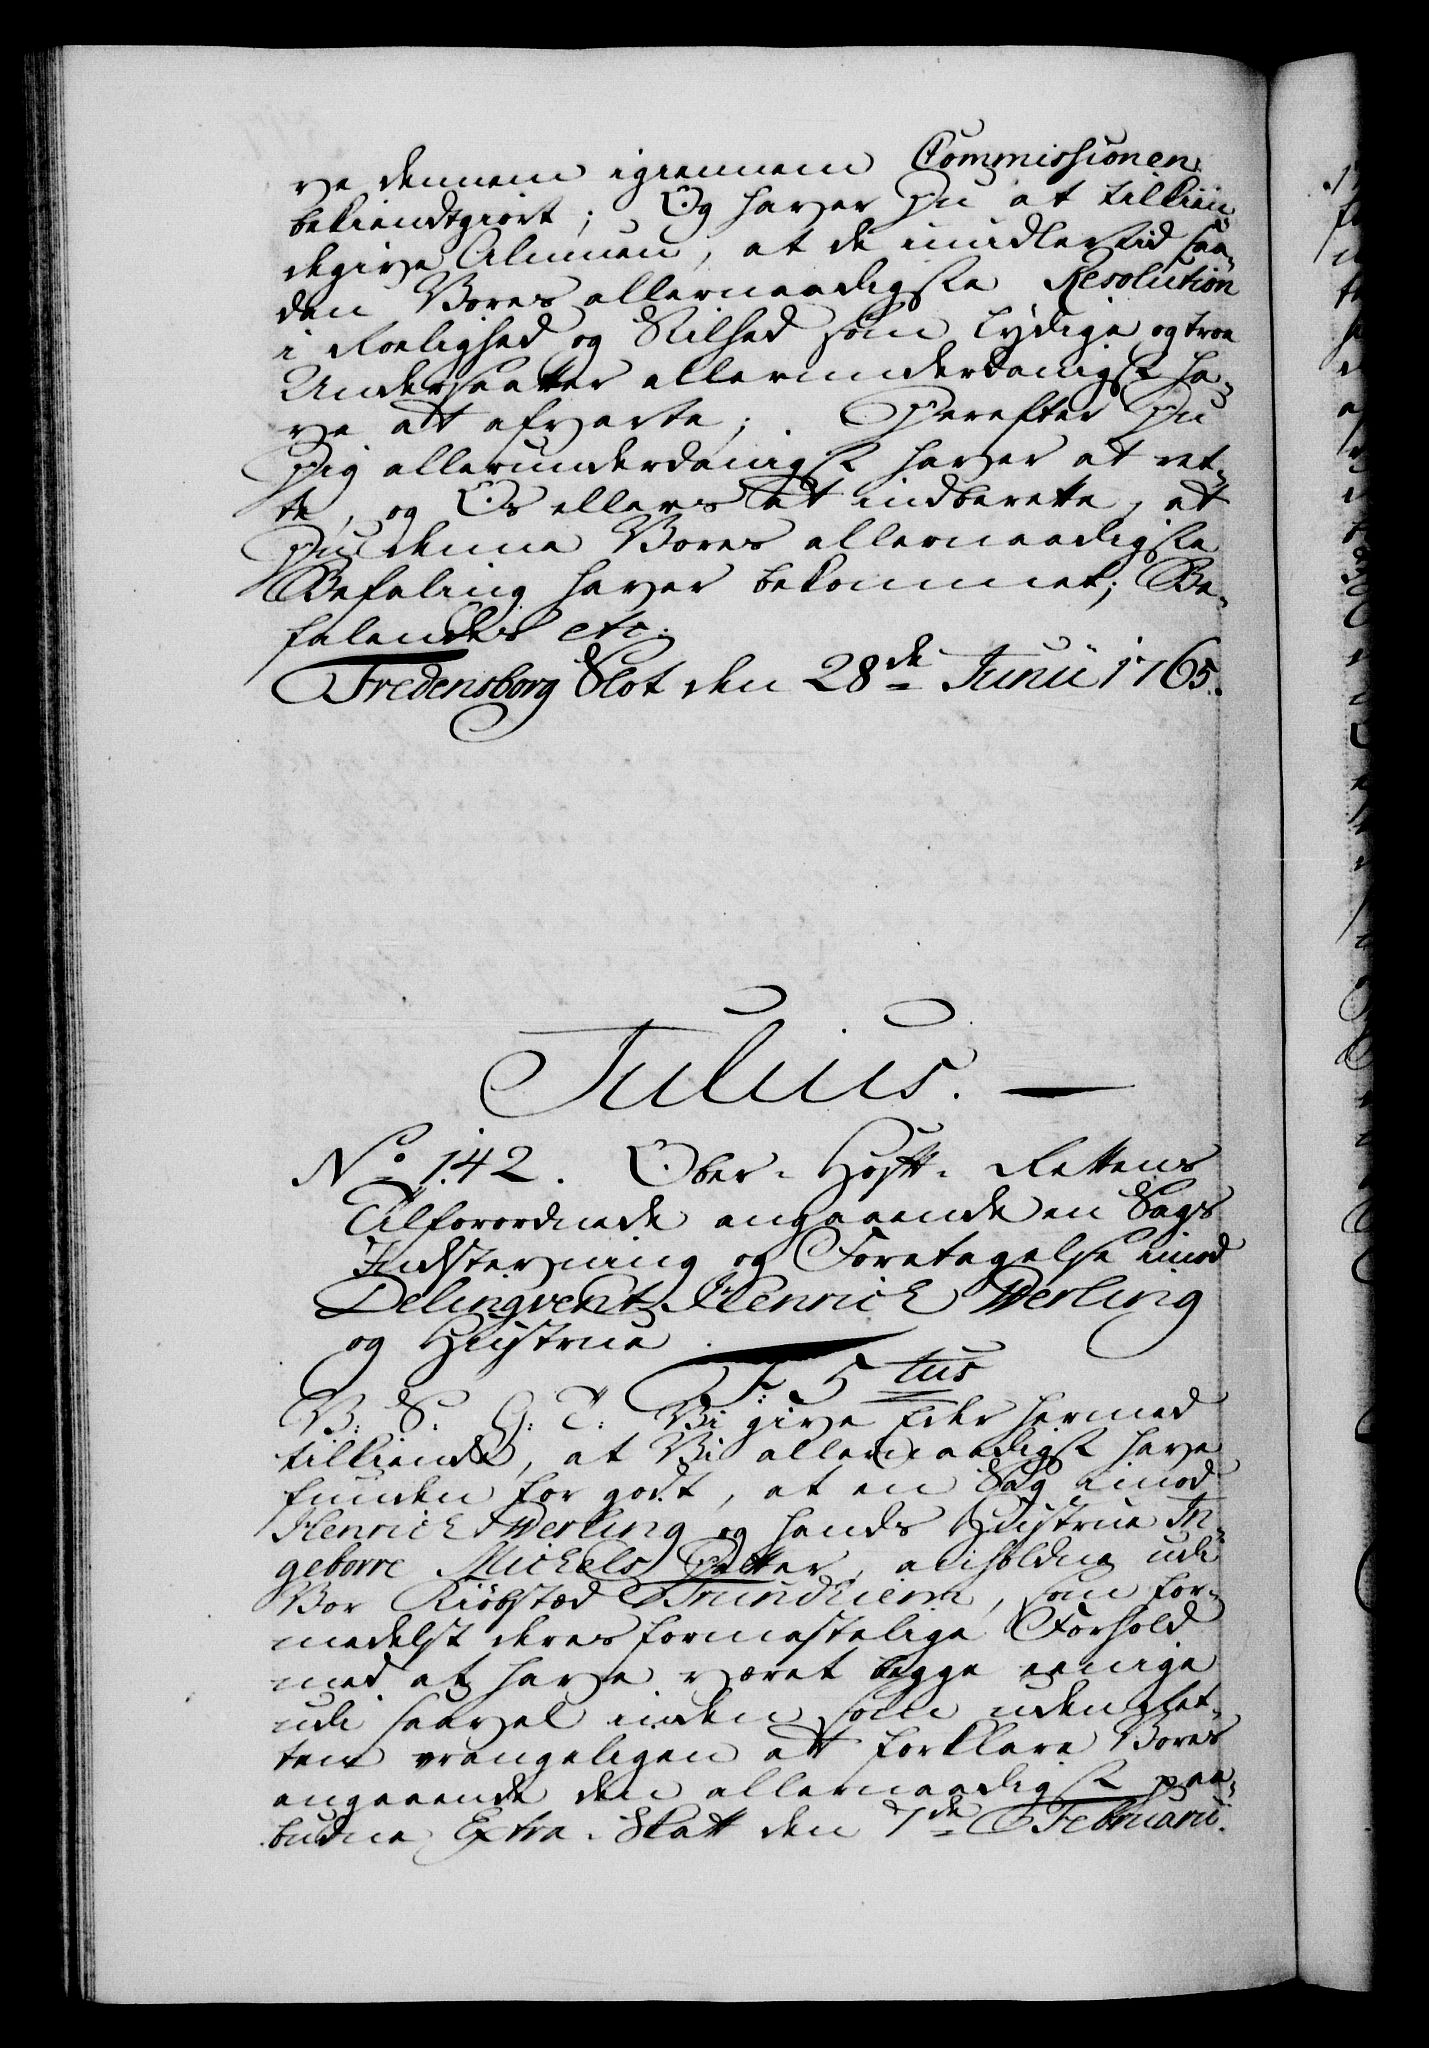 ve dennem igiennem Commissionen
bekiendtgiort; Og haver Du at tilkiin-
degive Almuen, at de imidlertid saa-
dan Vores allernaadigste Resolution
i Roelighed og Stilhed som lydige og troe
Undersaatter allerunderdanigst ha-
ve at afvarte; Derefter Du
Dig allerunderdanigst haver at ret-
te, og Os ellers at indberette, at
Du denne Vores allernaadigste
Befaling haver bekommet; Be-
falendes etc.
Fredensborg Slot den 28de Junii 1765.
Julius.
No 142. Ober-Hoff-Rettens
Tilforordnede angaaende en Sags
Indstevning og Foretagelse imod
Delinqvent Henrich Werling
og Hustrue.
F: 5tus
V: S: G: T: Vi give Eder hermed
tilkiende, at Vi allernaadigst have
funden for godt, at en Sag imod
Henrich Werling og hands Hustrue In-
geborre Michels Datter, anholdne udi
Vor Kiöbstæd Trundhiem, som for-
medelst deres formastelige Forhold
med at have været begge eenige
udi saavel inden som uden Ret-
ten vrangeligen at forklare Vores
angaaende den allernaadigst paa-
budne Extra-Skatt den 7de Februarii